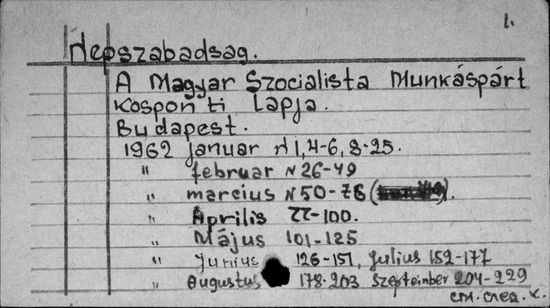 1.
Nepszabadsag.
A Magyar Szocialista Munkáspárt
Kosponti Lapja.
Budapest.
1962 januar N 1,4-6, 8-25.
" februar N 26-49
" marcius N 50-76
" Április 77-100.
" Május 101-125
" Junius 126-151, Julius 152-177
" Augustus 178-203 szeptember 204-229
см. след. к.